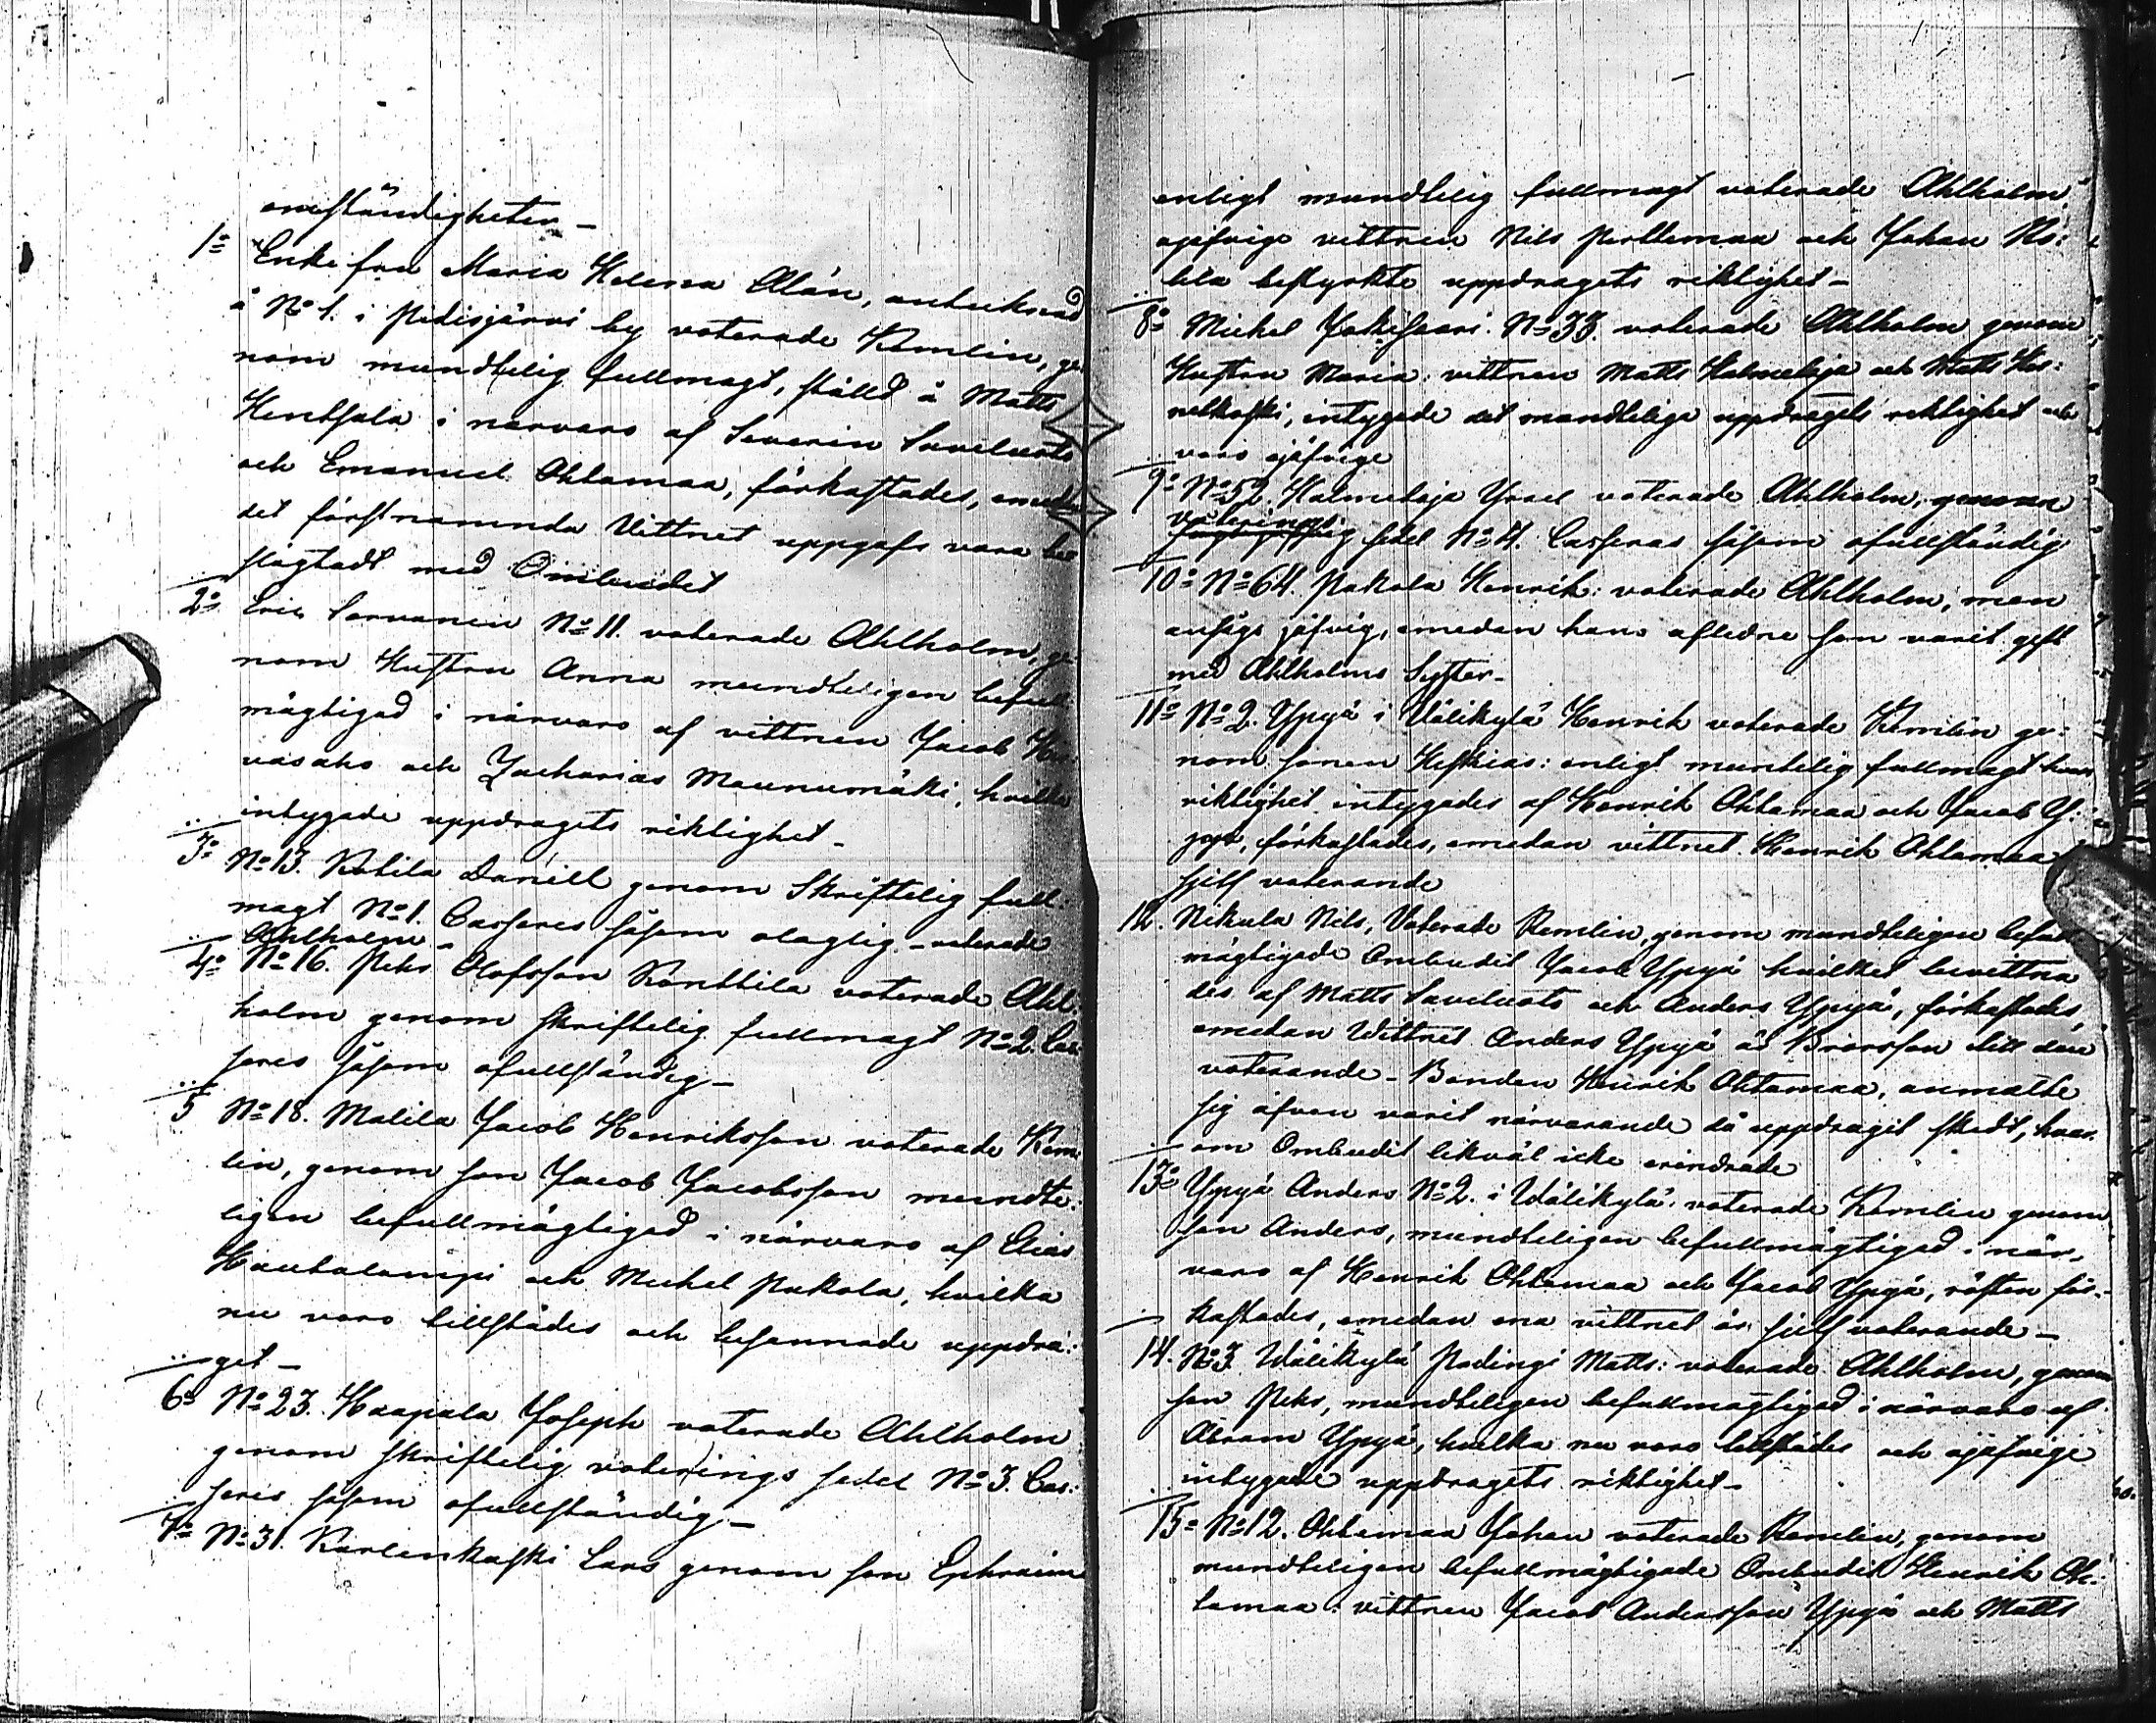 omständigheter_
1o Enke fru Maria Helena Alán, antecknad
å No 1. i Pedisjärvi by voterade Kemlin, ge
nom mundtelig fullmagt, ställd å Matts
Hentsala i närvaro af Severin Saveluoto
och Emanuel Ohtamaa, förkastades, emedan
det förstnamnda Vittnet uppgafs vara be
slägtadt med Ombudet
2o Eric Sorvanen No 11. voterade Ahlholm, ge
nom Hustru Anna mundteligen befull
mägtigad i närvaro af vittnen Jacob
vasaho och Zacharias Maunumäki, hvilka
intygade uppdragets riktighet_
3o No 13. Kotila Daniell genom Skriftelig full
magt No 1. Casseres såsom olaglig - voterade
Ahlholm_
4o No 16. Pehr Olofsson Konttila voterade Ahl:
holm genom skriftelig fullmagt No 2. Cas
seres såsom ofullständig_
5 No 18. Malila Jacob Henriksson voterade Kem
lin, genom son Jacob Jacobsson mundte:
ligen befullmägtigad i närvaro af Elias
Hautalampi och Michel Pukala, hvilka
nu voro tillstädes och besannade uppdra:
get_
6o No 23. Haapala Joseph voterade Ahlholm
genom skriftelig voterings sedel No 3. Cas:
seres såsom ofullständig_
7o No 31. Karlenkaski Lars genom son Ephraim
enligt mundtelig fullmagt voterade Ahlholm,
ojäfvige vittnen Nils Perttemaa och Johan Ko:
tila bestyrkte uppdragets riktighet_
8o Michel Jokisaari No 33. voterade Ahlholm genom
Hustru Maria: vittnen Matts Halmeloja och Matts
nelkoski, intygade det mundtelige uppdragets riktighet och
voro ojäfvige
9o No 52. Halmeloja Yrael voterade Ahlholm, genom
voterings
sedel No 4. Casseras såsom ofullständig
10o No 64. Pakola Henrik: voterade Ahlholm, men
ansågs jäfvig, emedan hans aflidne son varit gift
med Ahlholms Syster_
11o No 2. Yppyä i Välikylä Henrik voterade Kemlin ge:
nom sonen Heskias: enligt muntelig fullmagt hvars
riktighet intygades af Henrik Ohtamaa och Jacob Y:
pyä, förkastades, emedan vittnet Henrik Ohtamaa
sjelf voterande
12. Nikula Nils, Voterade Kemlin, genom mundteligen befull
mägtigade Ombudet Jacob Yppyä hvilket bevittna
des af Matts Saveluoto och Anders Yppyä, förkastades,
emedan Vittnet Anders Yppyä är Brorsson till den
voterande - Bonden Henrik Ohtamaa, anmälte
sig äfven varit närvarande då uppdraget skedt, hvar
om Ombudet likväl icke erindrade
13o Yppyä Anders No 2. i Wälikylä voterade Kemlin genom
son Anders, mundteligen befullmägtigad i när,
varo af Henrik Ohtamaa och Jacob Yppyä, rösten för:
kastades, emedan ena vittnet är sjelf voterande_
14. No 3 Wälikylä Podingi Matts: voterade Ahlholm, genom
son Pehr, mundteligen befullmägtigad i närvaro af
Abram Yppyä, hvilka nu voro tillstädes och ojäfvige
intygade uppdragets riktighet_
15o No 12. Ohtamaa Johan voterade Kemlin, genom
mundteligen befullmägtigade Ombudet Henrik Oh:
tamaa: vittnen Jacob Andersson Yppyä och Matts